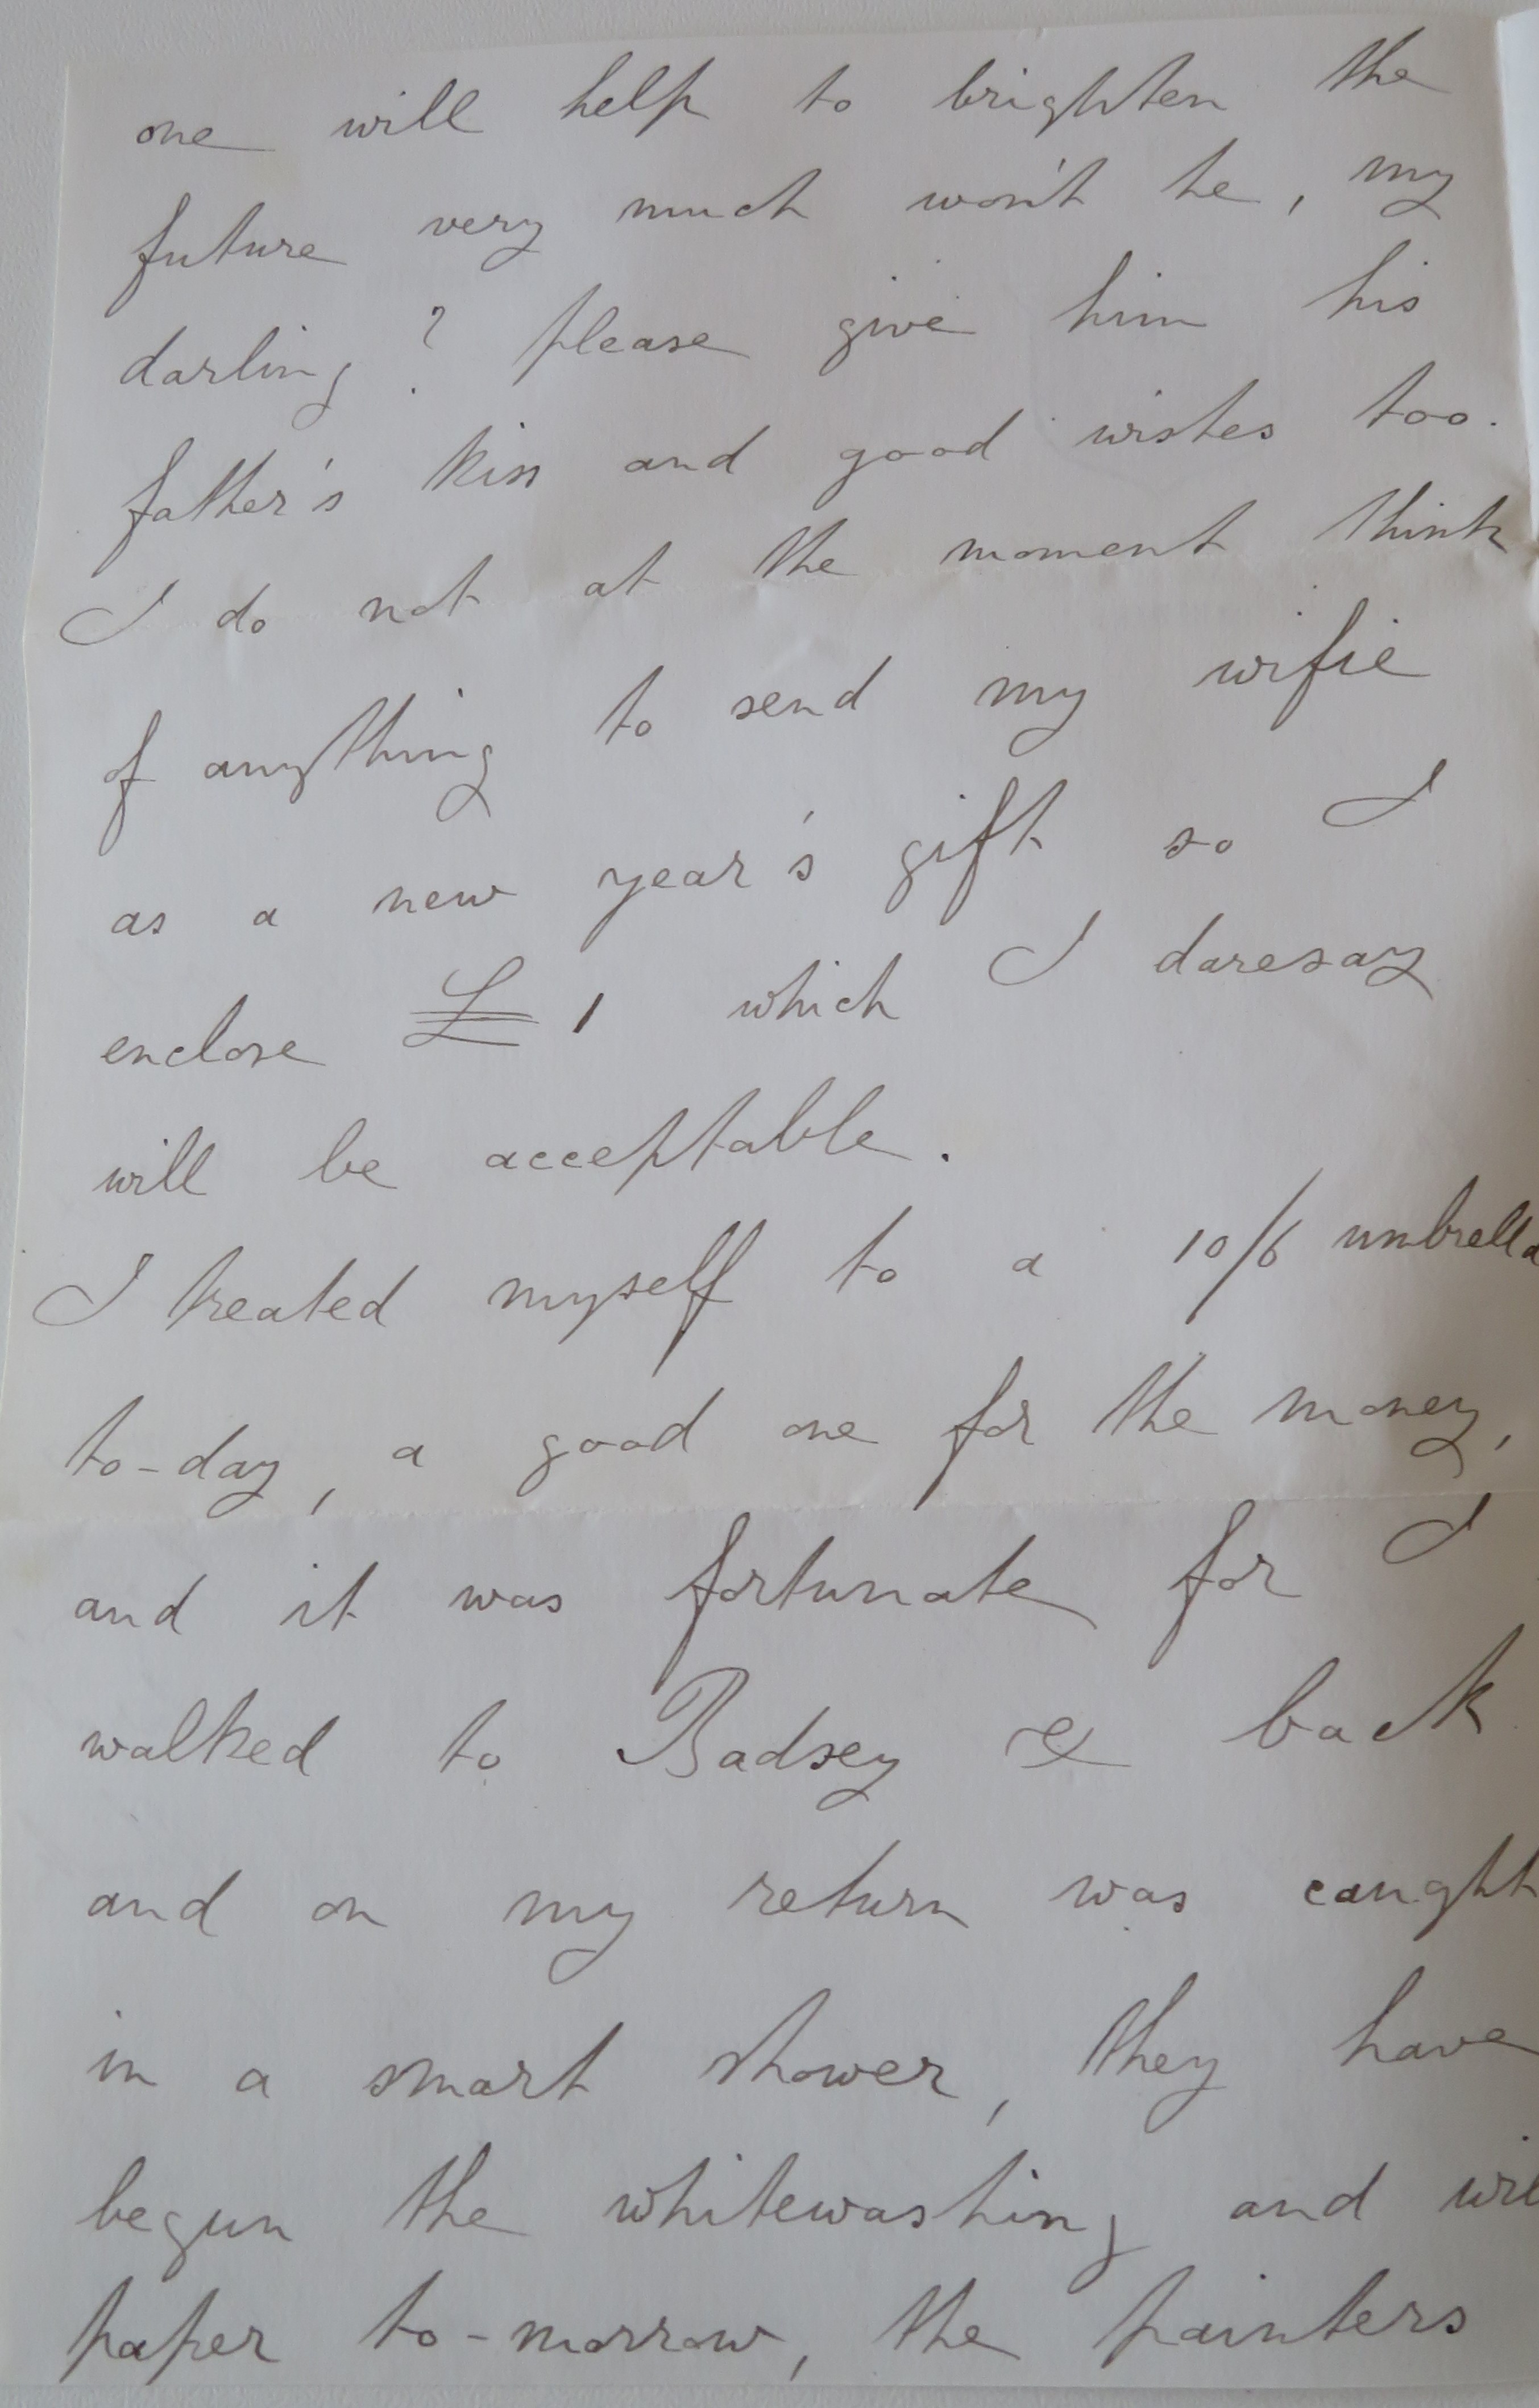 one will help to brighten the
future very much won't he, my
darling? please give him his
father's kiss and good wishes too.
I do not at the moment think
of anything to send my wifie
as a new year's gift so I
enclose £1 which I daresay
will be acceptable.
I treated myself to a 10/6 umbrella
to-day, a good one for the money,
and it was fortunate for I
walked to Badsey & back
and on my return was caught
in a smart shower, they have
begun the whitewashing and wil
paper to-morrow, the painters